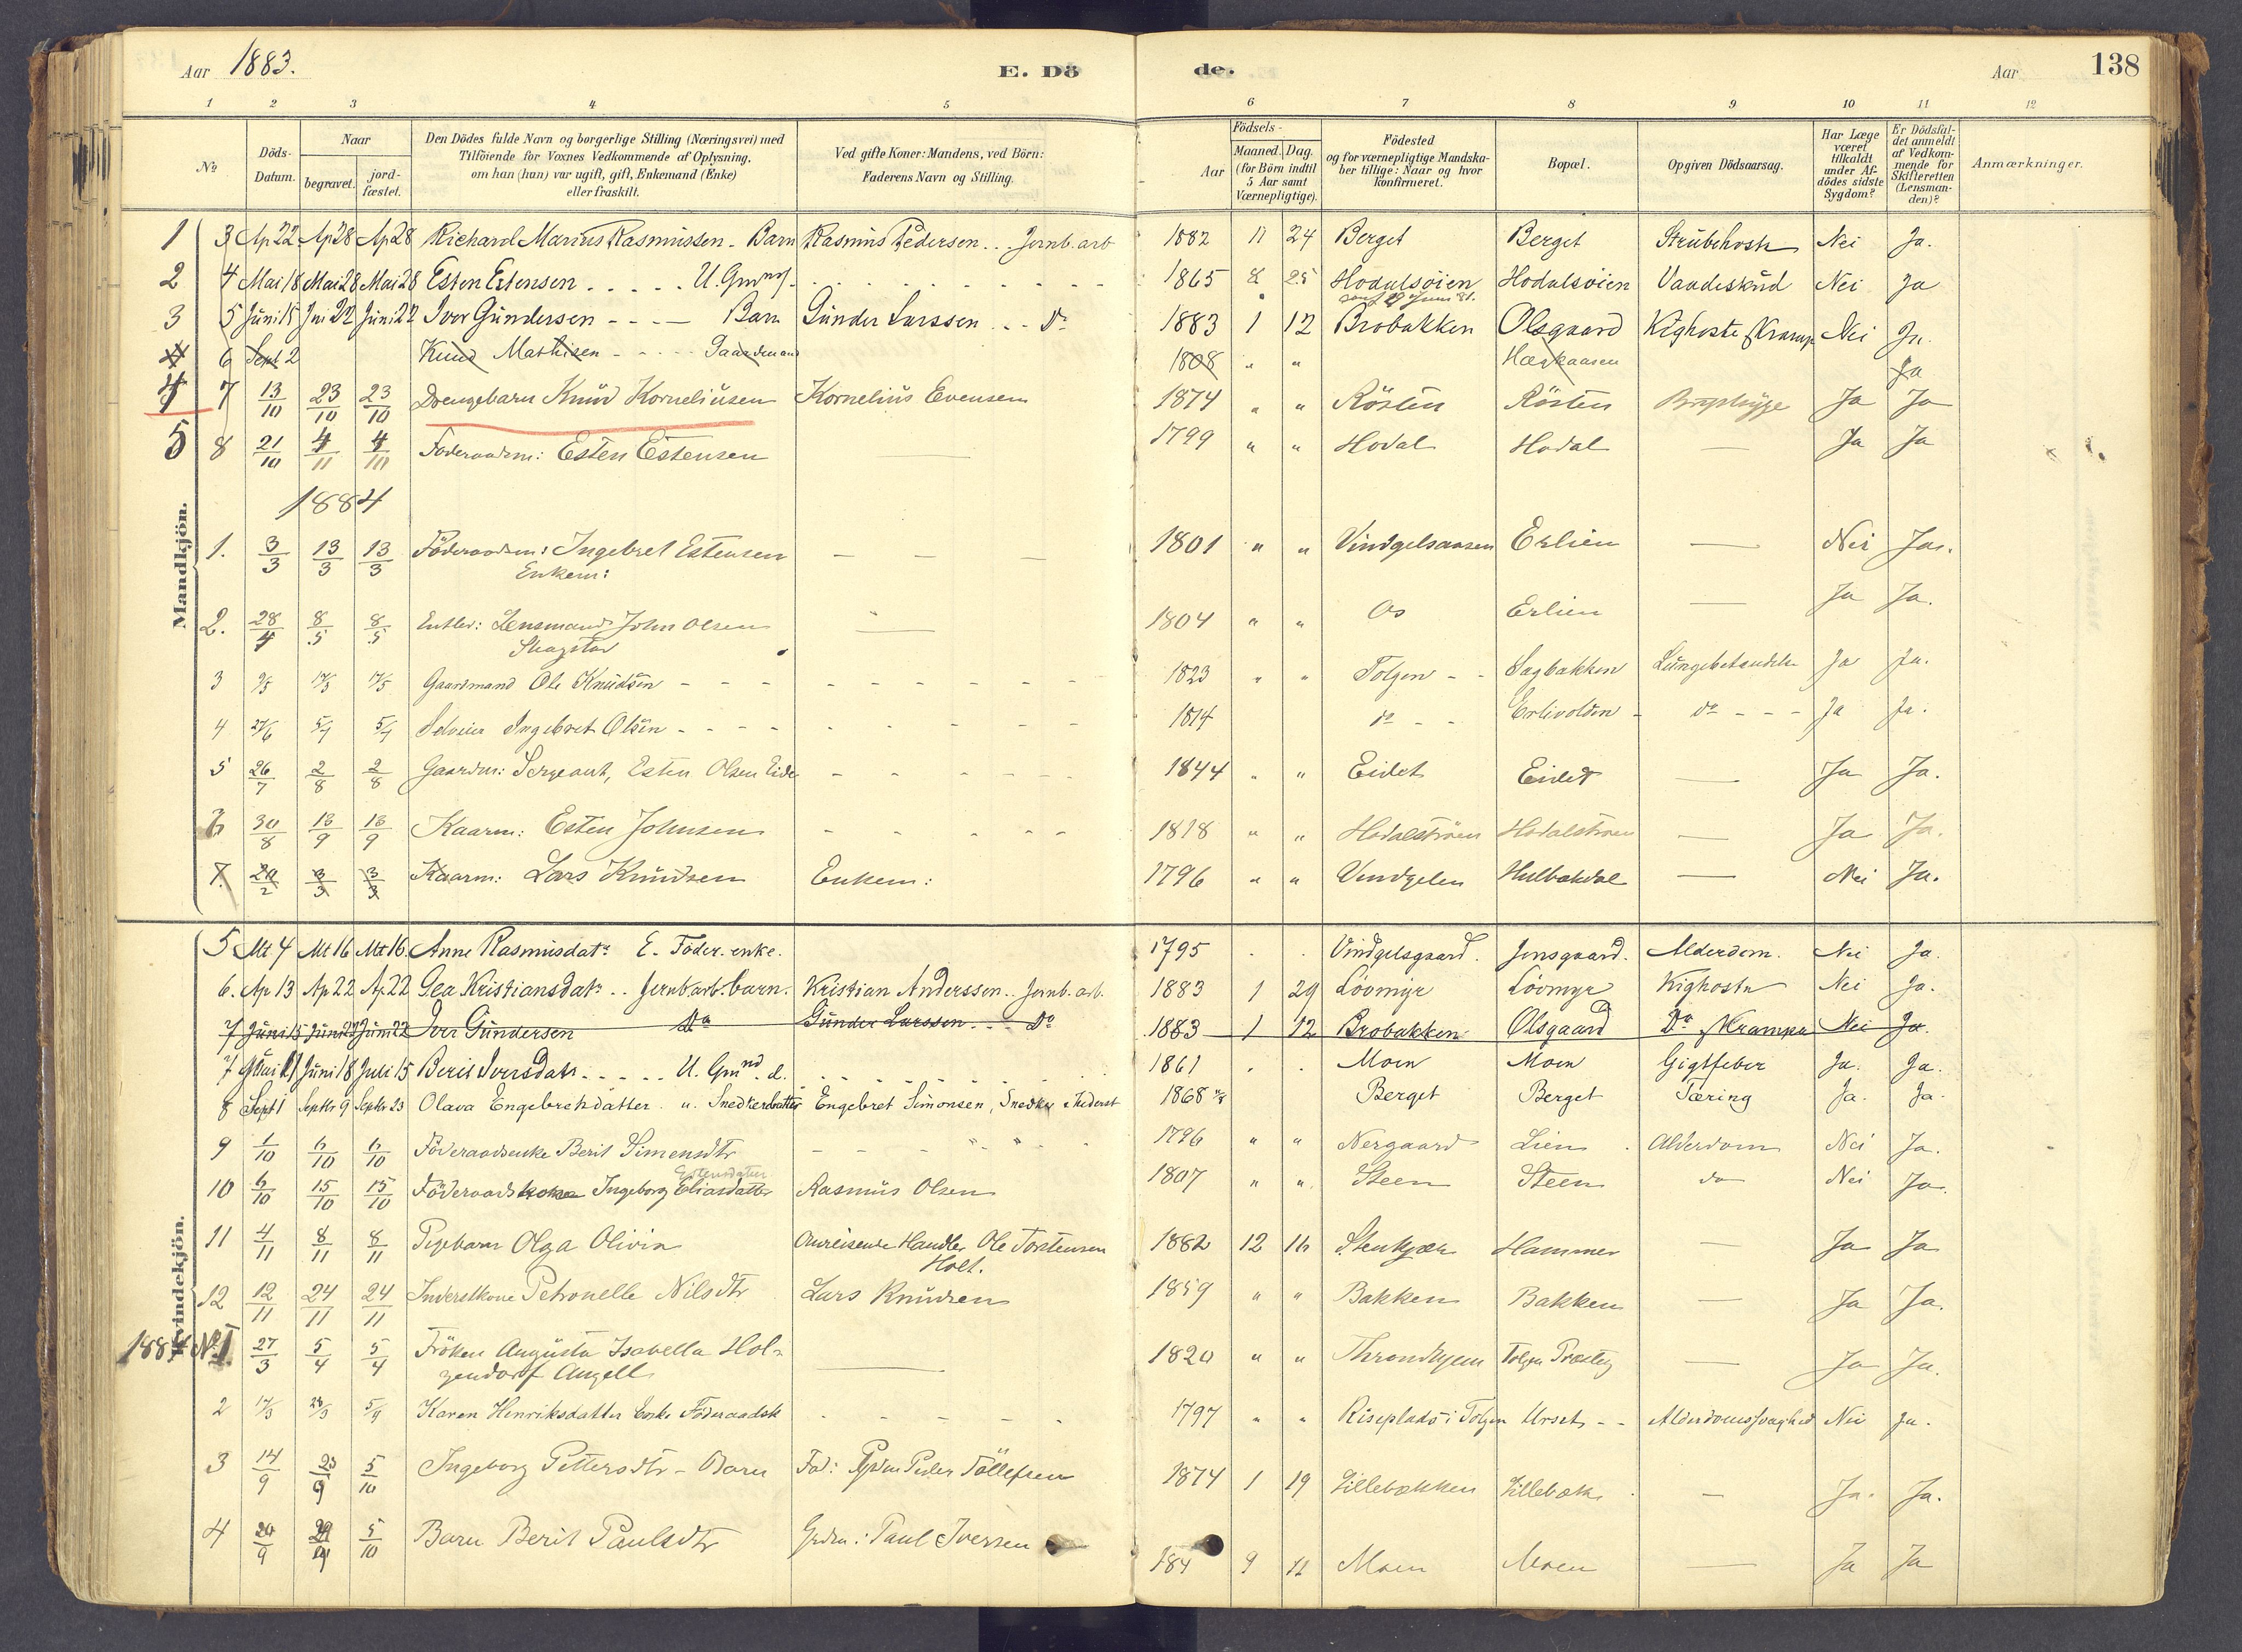 Aar 1883. E. Dö de. Aar 138
1 2 3 4 5 6 7 8 9 10 11 12
No Döds-Datum. Naar begravet. jord-fæstet. Den Dödes fulde Navn og borgerlige Stilling (Næringsvei) med Tilföiende for Voxnes Vedkommende af Oplysning, om han (hun) var ugift, gift, Enkemand (Enke) eller fraskilt. Ved gifte Koner: Mandens, ved Börn: Faderens Navn og Stilling. Aar Födsels- Maaned. Dag. (for Börn indtil 5 Aar samt Værnepligtige). Födested og for værnepligtige Mandskaber tillige: Naar og hvor konfirmeret. Bopæl. Opgiven Dödsaarsag. Har Læge været tilkaldt under Afdödes sidste Sygdom? Er Dödsfaldet anmeldt af Vedkommende for Skifteretten (Lensmanden)? Anmærkninger.
Mandkjön.
1 3 Ap 22 Ap 28 Ap 28 Richard Marius Rasmussen - Barn Rasmus Pedersen . . Jernb. arb 1882 11 24 Berget Berget Strubehoste Nei Ja.
2 4 Mai 18 Mai 28 Mai 28 Esten Estensen . . . . . U. Gmnd 1865 8 25 Hodalsöien Hodalsöien Vaadeskud Nei Ja
3 5 Juni 15 Jni 22 Juni 22 Iver Gundersen - - - - Barn Gunder Larssen . . . Do 1883 1 12 Brobakken Olsgaard Kighoste & Krampe Nei Ja.
4 6 Sept 2 Knud Mathisen - - - - Gaardmand 1808 " " Ja
4 7 13/10 23/10 23/10 Drengebarn Knud Korneliusen Kornelius Evensen 1874 " " Rösten Rösten Ja Ja
5 8 21/10 4/11 4/11 Föderaadsm: Esten Estensen — 1799 " " Hodal Hodal — Ja Ja
1884
1. 3/3 13/3 13/3 Föderaadsm: Ingebret Estensen — — — 1801 " " Vindgelsaasen Erlien — Nei Ja.
Enkem:
2. 28/4 8/5 8/5 Entled: Lensmand John Olsen — 1804 " " Os Erlien — Ja Ja.
3 9/5 17/5 17/5 Gaardmand Ole Knudsen - - - 1823 " " Tolgen - - Sagbakken Lungebetændelse Ja Ja.
4 27/6 5/7 5/7 Selveier Ingebret Olsen - - - - 1814 do - - Erlivolden - do - - - Ja Ja.
5 26/7 2/8 2/8 Gaardm: Sergeant, Esten Olsen Eide - 1844 " " Eidet Eidet — Ja Ja.
6 30/8 13/9 13/9 Kaarm: Esten Johnsen 1818 " " Hodalströen Hodalströen — Ja Ja.
7. 20/2 3/3 3/3 Kaarm: Lars Knudsen Enkem: 1796 " " Vindgelen Hulbakdal — Nei Ja.
Kvindekjön.
5 Mt 4 Mt 16 Mt 16. Anne Rasmusdatr E. Föder. enke. 1795 . . Vindgelsgaard. Jensgaard. Alderdom. Nei Ja.
6. Ap 13 Ap 22 Ap 22 Gea Kristiansdatr . . Jernb arb. barn. Kristian Anderssen . . Jernb. arb. 1883 1 29 Lövmyr Lövmyr Kighoste Nei Ja.
7 Juni 15 Juni 22 Juni 22 Iver Gundersen Do Gunder Larssen . . . Do 1883 1 12 Brobakken Olsgaard Do & Krampe Nei Ja.
7 Juni 18 Juli 15 Berit Iversdatr . . . . . U. Gmnd. d. 1861 . . Moen Moen Gigtfeber Ja. Ja.
8 Sept 1 Septbr 9 Septbr 23 Olava Engebretsdatter u. Snedkerdatter Engebret Simonsen, Snedker & Inderst 1868 Berget Berget Tæring Ja. Ja.
9 1/10 6/10 6/10 Föderaadsenke Berit Simensdtr 1796 " " Nergaard Lien . Alderdom Nei Ja.
Estensdatter
10 6/10 15/10 15/10 Föderaadskone Ingeborg Eliasdatter Rasmus Olsen 1807 " " Steen Steen do Nei Ja.
11 4/11 8/11 8/11 Pigebarn Olga Olivia Omreisende Handler Ole Torstensen 1882 12 16 Stenkjær Hammer — Ja Ja
Holt.
12 12/11 24/11 24/11 Inderstkone Petronelle Nilsdtr Lars Knudsen 1859 " " Bakken Bakken — Ja Ja.
1884 No 1. 27/3 5/4 5/4 Fröken Augusta Isabella Hol- — 1820 " " Throndhjem Tolgen Præstg — Ja Ja.
zendorf Angell
2 17/3 5/9 Karen Henriksdatter Enke Föderaadsk 1797 " " Riseplads i Tolgen Urset - - Alderdomssvaghed Nei Ja.
3 14/9 23/9 5/10 Ingeborg Pettersdtr - Barn Fad: Grdm Peder Tollefsen 1874 1 19 Lillebækken Lillebæk — Ja. Ja.
4 20/9 5/10 Barn Berit Paulsdtr Grdm: Paul Iversen 184 9 12 Moen Moen — Ja Ja